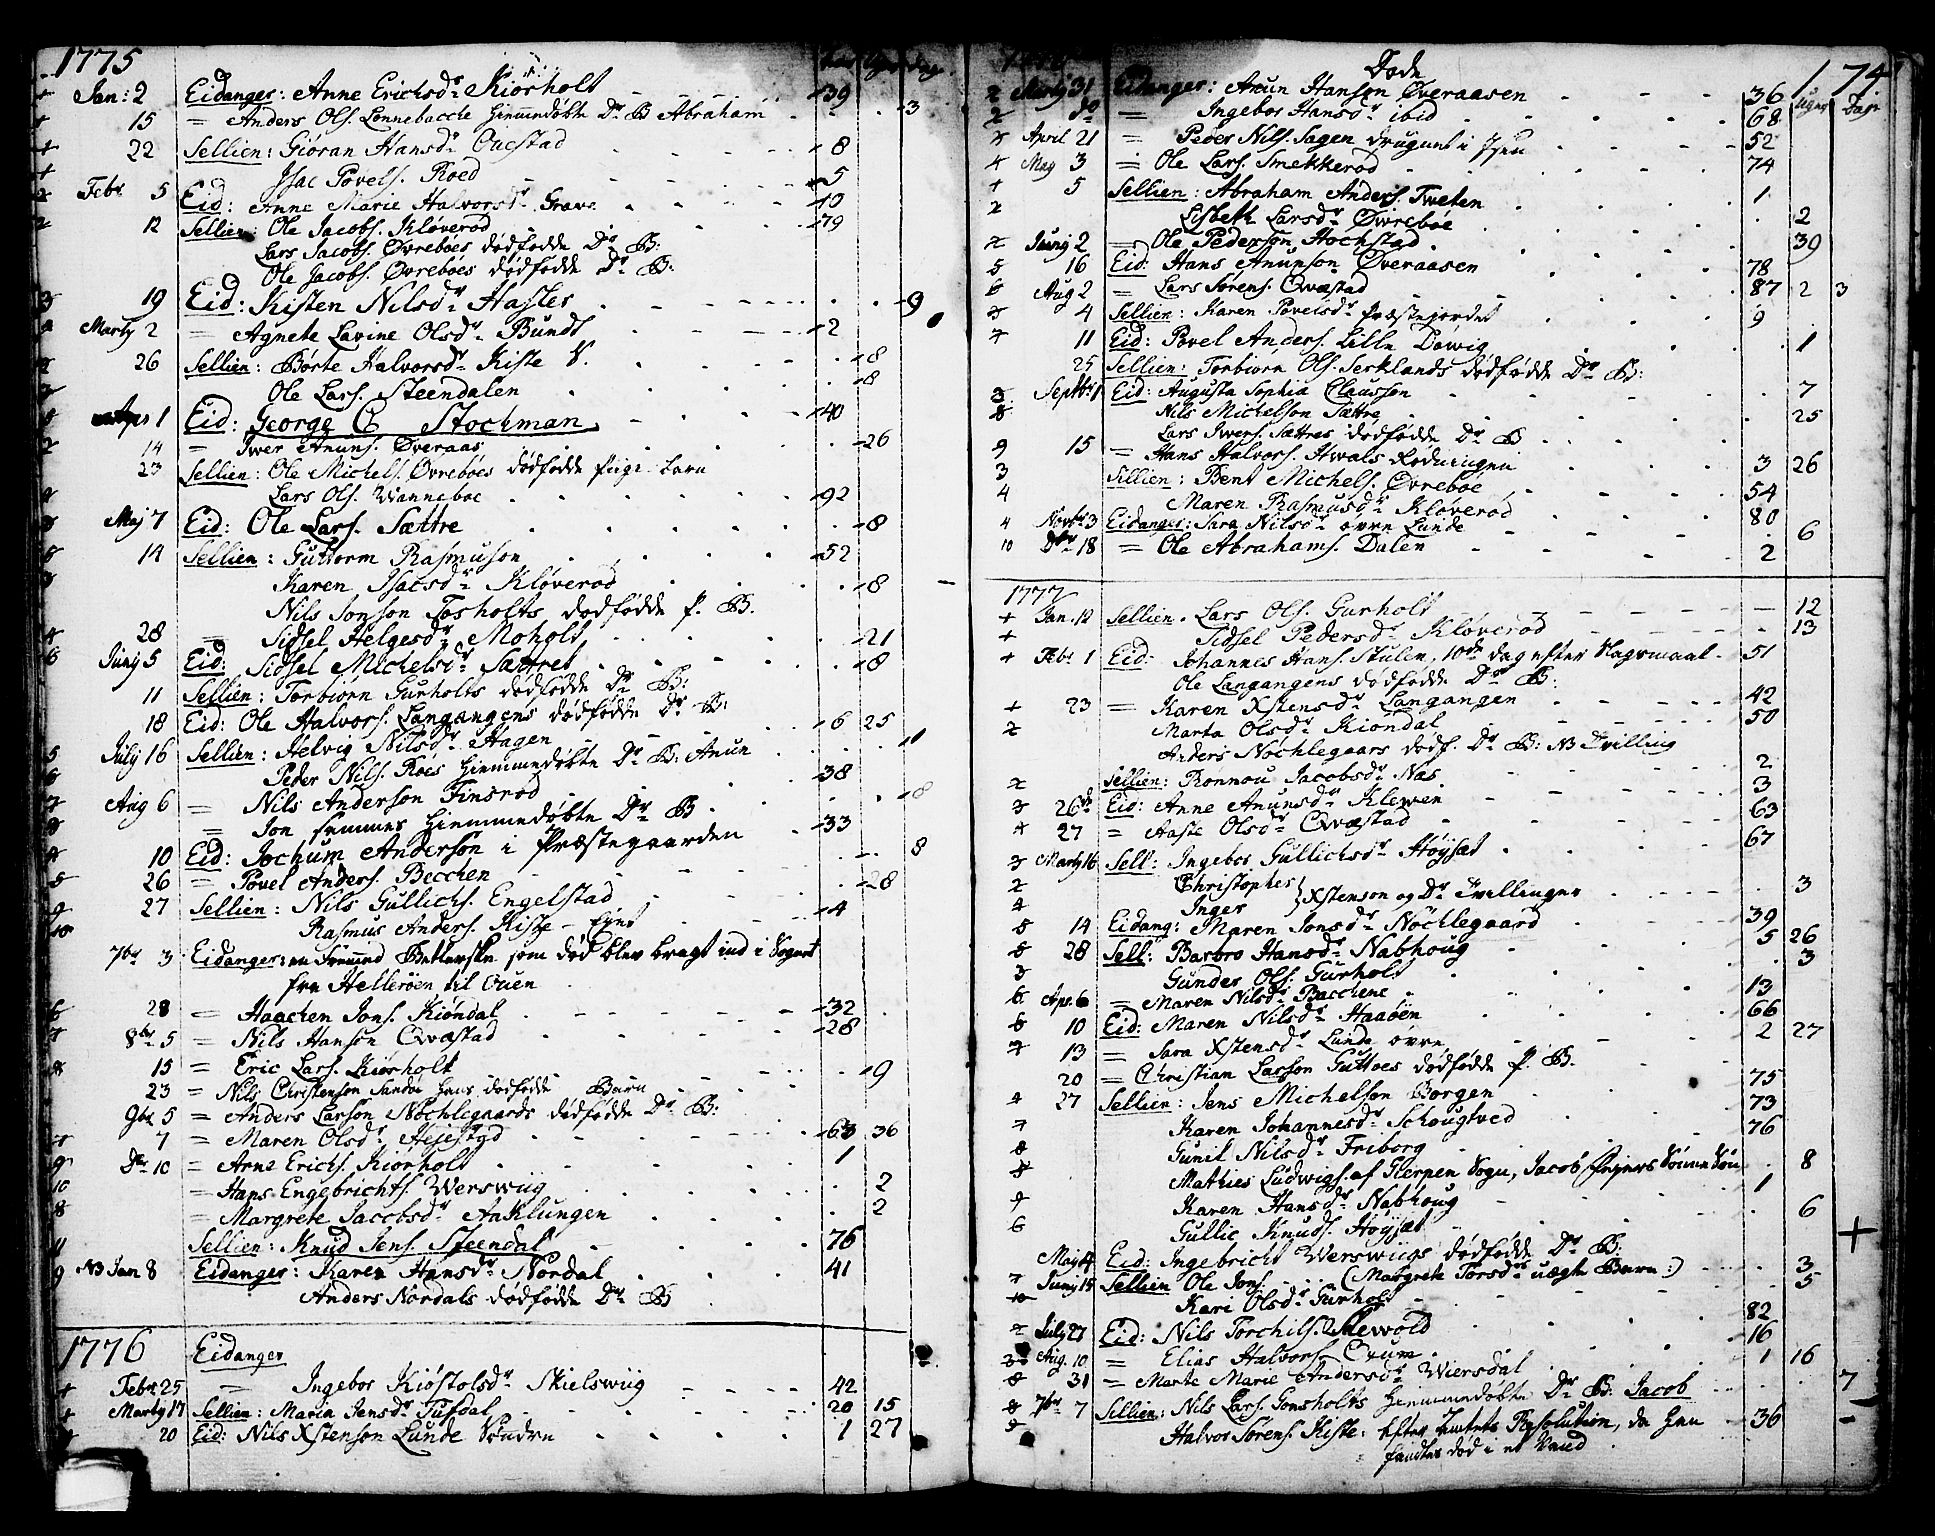 1775
Jan: 2 Eidanger: Anne Erichsdr Kiørholt 39
15 = Anders Ols. Lønnebacche hiemmedøbte Dr B Abraham 3
22 Sellien: Giøran Hansdr Qvestad 8
Isac Povels. Roed 5
Febr 5 Eid: Anne Marie Halvorsdr Grava 13
12 Sellien: Ole Jacobs. Kløverød 79
Lars Jacobs. Øvrebøes dødfødde Dr B:
Ole Jacobs. Øvrebøes dødfødde Dr B:
19 Eid: Kisten Nilsdr Hasler 9
Martij 2 = Agnete Lavine Olsdr Bunds 2
26 Sellien: Børte Halvorsdr Kiste V. 8
Ole Lars. Steendalen 8
Apr 1 Eid: George C Stochman 40
14 = Iver Anuns. Øveraas 26
23 Sellien: Ole Michels. Øvrebøes dødfødde Pige barn
Lars Ols. Wanneboe 92
Maj 7 Eid: Ole Lars. Sættre 8
14 Sellien: Guttorm Rasmuson 52
Karen Isacsdr Kløverød 8
Nils Jonson Tosholts dødfødde P. B.
28 = Sidsel Helgesdr Moholt 21
Junij 5 Eid: Sidsel Michelsdr Sættret 8
11 Sellien: Torbiørn Gurholts dødfødde Dr B:
18 Eid: Ole Halvors. Langangens dødfødde Dr B:
July 16 Sellien: Helvig Nilsdr Hagen 6 25
Peder Nils. Roes hiemmedøbte Dr B: Anun 11
Aug 6 = Nils Anderson Finsrød 38
= Jon hiemmedøbte Dr B 8
10 Eid: Jochum Anderson i Præstegaarden 33
26 = Povel Anders. Becchen 8
27 Sellien: Nils Gullichs. Engelstad 28
Rasmus Anders. Kiste 4
7br 3 Eidanger: en som død blev bragt ind i Sognet
fra Hellerøen til
28 = Haachen Jons. Kiøndal 32
8br 5 = Nils Hanson Qvæstad 28
15 = Eric Lars. Kiørholt 9
23 = Nils Christenson Sandøe hans dødfødde Barn
9br 5 = Anders Larson Nøchlegaards dødfødde Dr B:
7 = Maren Olsdr Hejestad 63 36
Dr 10 = Arne Erichs. Kiørholt 1
= Hans Engebrichts. Werswiig 2
= Margrete Jacobsdr Aaklungen 2
Sellien: Knud Jens. Steendal 76
NB Jan 8 Eidanger: Karen Hansdr Nordal 41
Anders Nordals dødfødde Dr B
1776 Eidanger
Febr 25 = Ingebor Kiøstolsdr Skielswiig 42
Martij 17 Sellien: Maria Jensdr Tufdal 20 15
20 Eid: Nils Xstenson Lunde Søndre 1 27
Døde 174
Uger Dage
Martij 31 Eidanger: Anun Hanson Øveraasen 36
do = Ingebor Hansdr ibid 68
April 21 = Peder Nils. Sagen 52
Maj 3 = Ole Lars. Smekkerød 74
5 Sellien: Abraham Anders. Tweten 1
Lisbeth Larsdr Øvrebøe 2
Junij 2 = Ole Pederson Hochstad 39
16 Eid: Hans Anunson Øveraasen 78
Aug 2 = Lars Sørens. Qvæstad 87 2 3
4 Sellien: Karen Povelsdr Præstejordet 9
11 Eid: Povel Anders. Lille Døwig 1
25 Sellien: Torbiørn Ols. Serklands dødfødde Dr B:
Septbr 1 Eid: Augusta Sophia Clausson 7
Nils Michelson Sættre 25
Lars Iwers. Sættres dødfødde Dr B
15 = Hans Halvors. 3 26
Sellien: Bent Michels. Øvrebøe 54
Maren Rasmusdr Kløverød 80
Novbr 3 Eidanger: Sara Nilsdr øvre Lunde 6
Dbr 18 = Ole Abrahams. Dalen 2
1777
Jan. 12 Sellien. Lars Ols. Gurholt 12
Sidsel Pedersdr Kløverød 13
Febr 1 Eid: Johannes Hans. Stulen, 10de Dag efter Slagsmaal 51
Ole Langangens dødfødde Dr B:
23 = Karen Xstensdr Langangen 42
Marta Olsdr Kiøndal 50
Anders Nøchlegaars dødf. Dr B: NB Tvilling
Sellien: Ronnou Jacobsdr Næs 2
26de Eid: Anne Anunsdr Klewen 3
27 = Aaste Olsdr Qvæstad 63
Martij 16 Sell: Ingebor Gullichsdr Høysæt 67
Christopher } Xstenson og Dr Tvillinger 3
Inger
14 Eidang: Maren Jonsdr Nøchlegaard 39
28 Sell: Barbro Hansdr Nabhoug 5 26
Gunder Ols. Gurholt 3
Apr. 6 = Maren Nilsdr Bacchene 13
10 Eid: Maren Nilsdr Haaøen 66
13 = Sara Xstensdr Lunde øvre 2 27
20 = Christian Larson Guttoes dødfødde P. B.
27 Sellien: Jens Michelson Borgen 75
Karen Johannesdr Schougtved 73
Gunil Nilsdr Friborg 76
Mathies Ludwigs. af Gierpen Sogn, Jacob Søn 8
Karen Hansdr Nabhoug 1
Gullic Knuds. Høysæt 6
Maj 14 Eid: Ingebricht Werswiigs dødfødde Dr B:
Junij 15 Sellien Ole Jons. (Margrete Torsdrs uægte Barn:) 3
Kari Olsdr Gurholt 5
July 27 Eid: Nils Torchils. Skewold 82
Aug. 10 = Elias Halvors. 16
31 = Marte Marie Andersdr Wiersdal 1 16
7br 7 Sellien: Nils Lars. Gonsholts hiemmedøbte Dr B: Jacob 7
Halvor Sørens. Kiste: efter Amtets Resolution, da han 36
fandtes død i et Vand